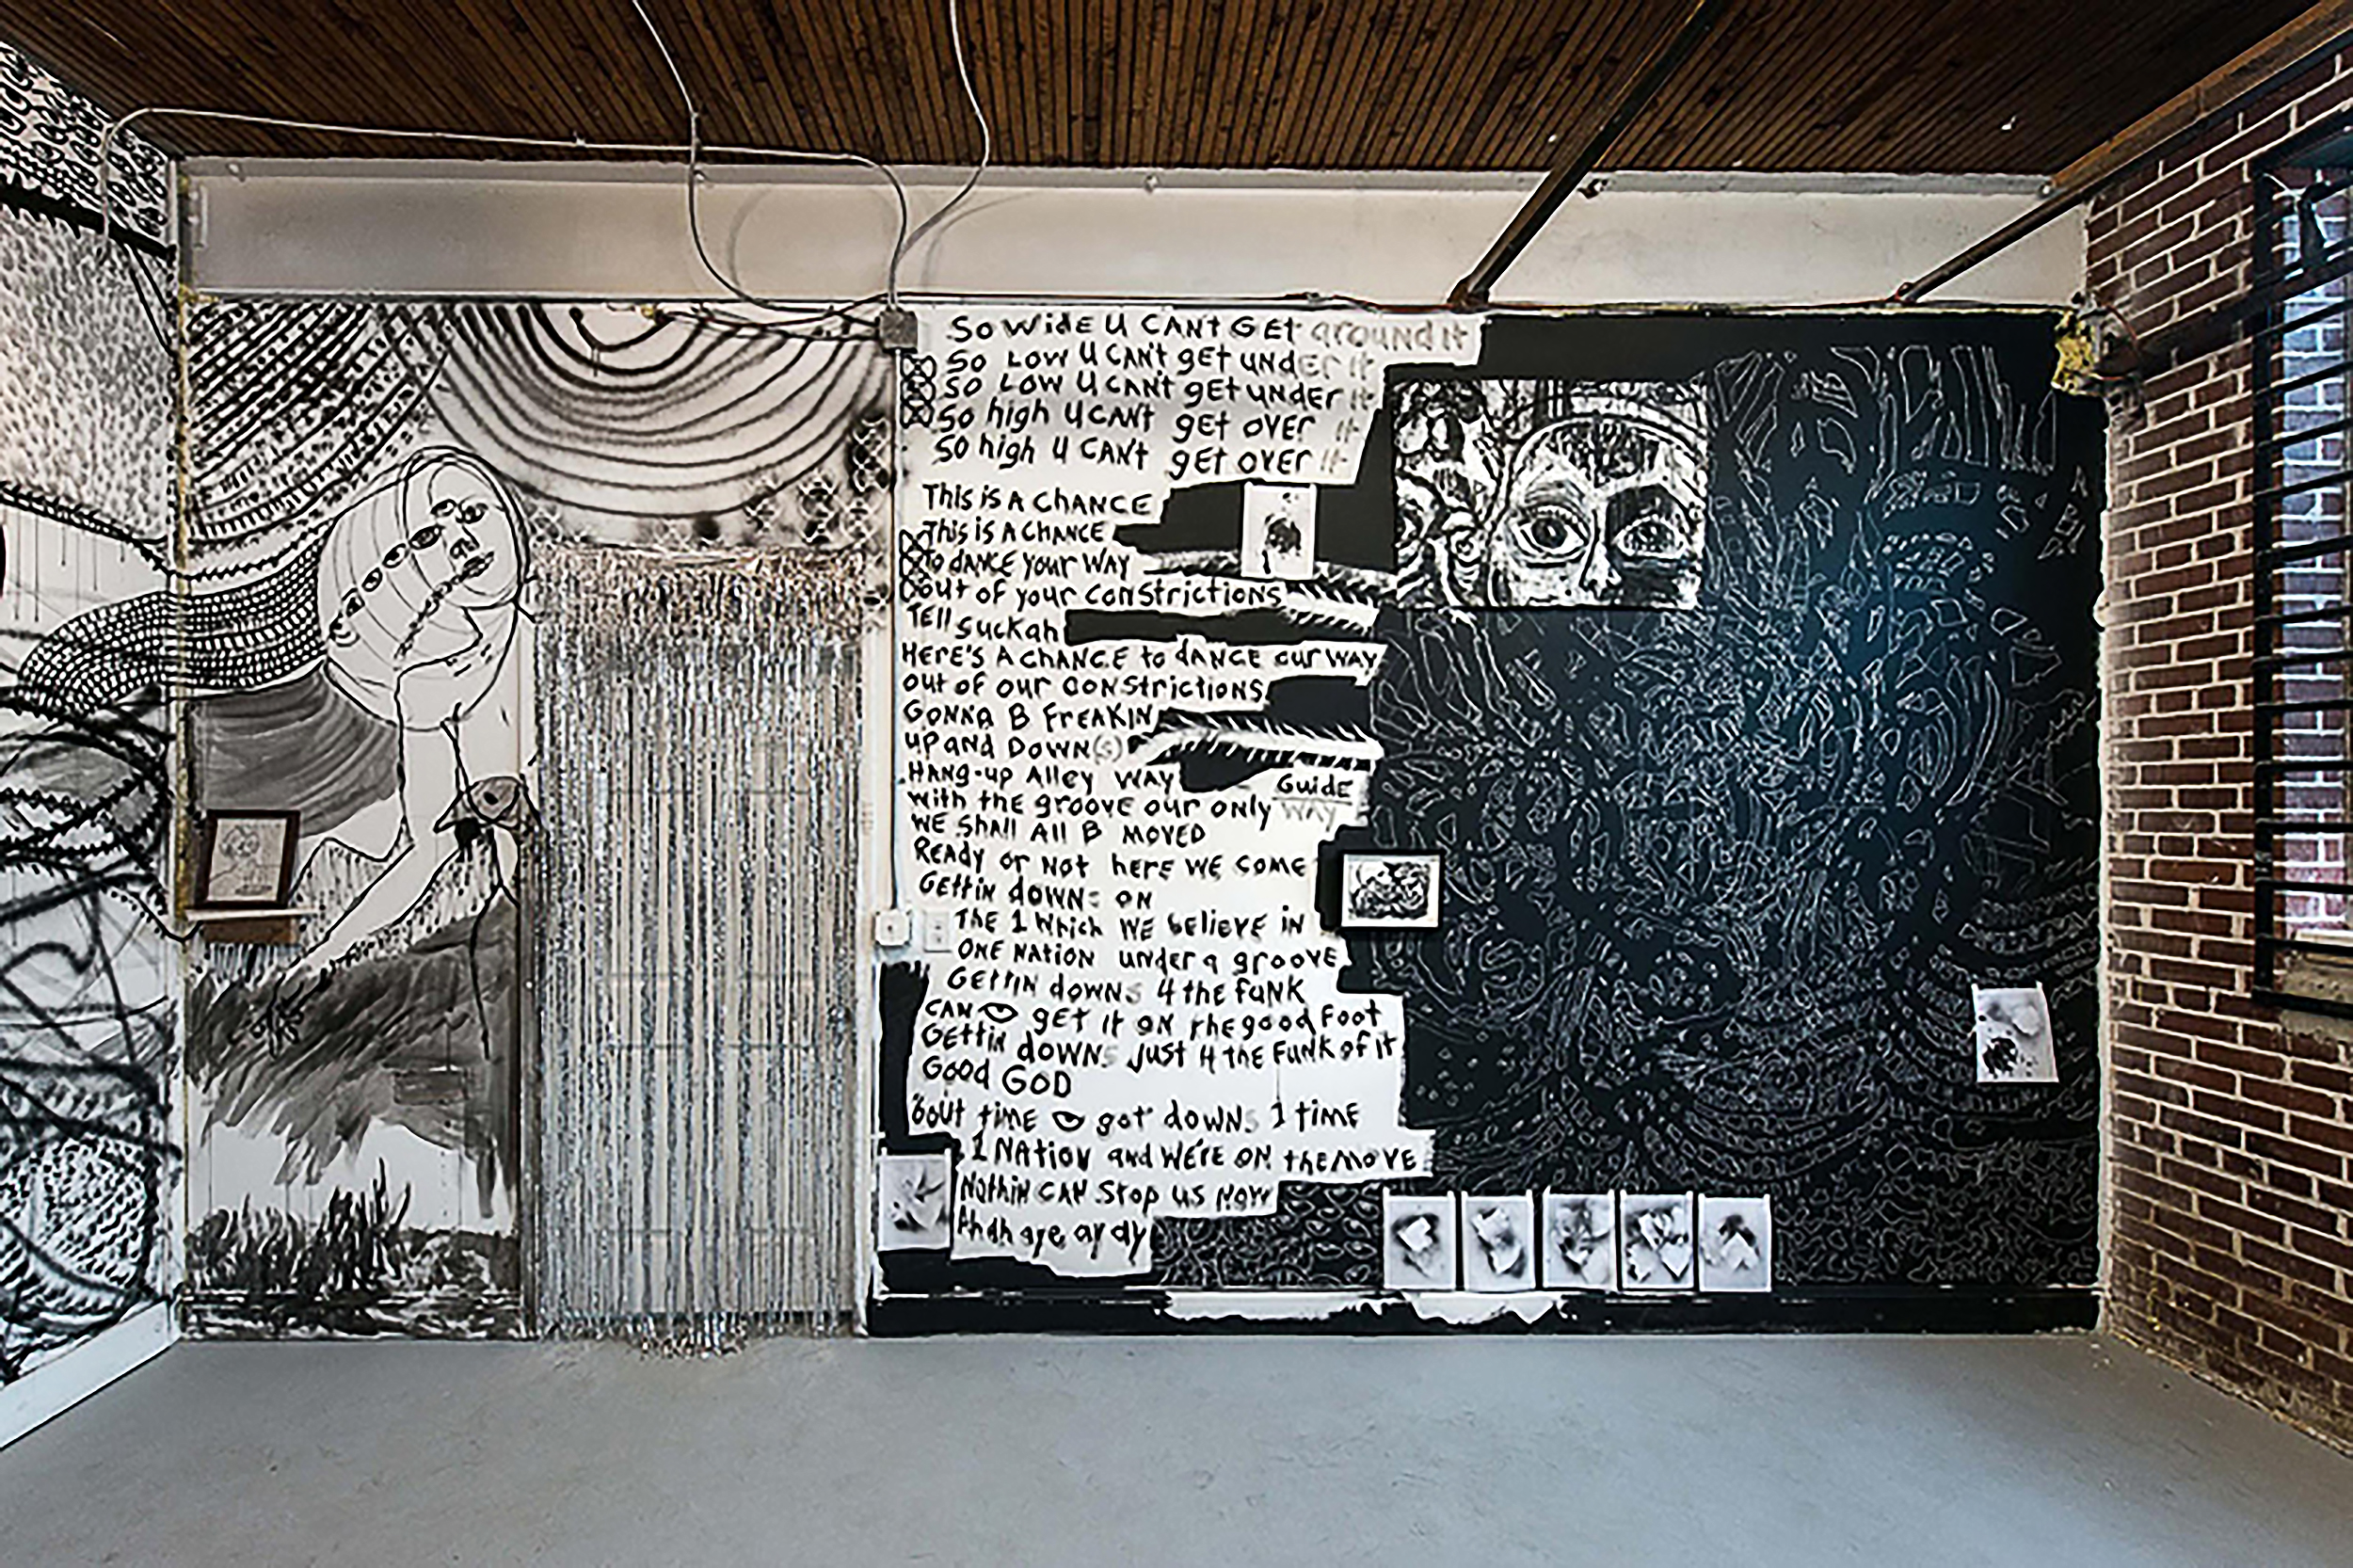 So WidE U CAN't GEt around It
So Low U CAN't gEt under It
So Low U CAN't gEt under It
So high U CAN't gEt OVER It
So high U CAN't gEt OVER It
This is A ChANCE
This is A CHANCE
to dANCE your WAY
out of your CONStrictions
TEll Suckah
HErE'S A ChANCE to dANCE our WAY
out of our CONStrictions
GONNA B FrEAKIN
up and Down(s)
HANg-up Alley WAY
Guide
with the groove our only WAY
WE Shall All B MOVED
READY or Not here WE COME
GEttin downs on
The 1 Which WE believe in
ONE NAtion under a groove
GEttin downs 4 the FUNK
CAN get it ON the good Foot
GEttin downs Just 4 the FUNK of it
Good GOD
'bout timE got downs 1 timE
1 NAtion and WE'rE ON the MOVE
Nothin CAN Stop us Now